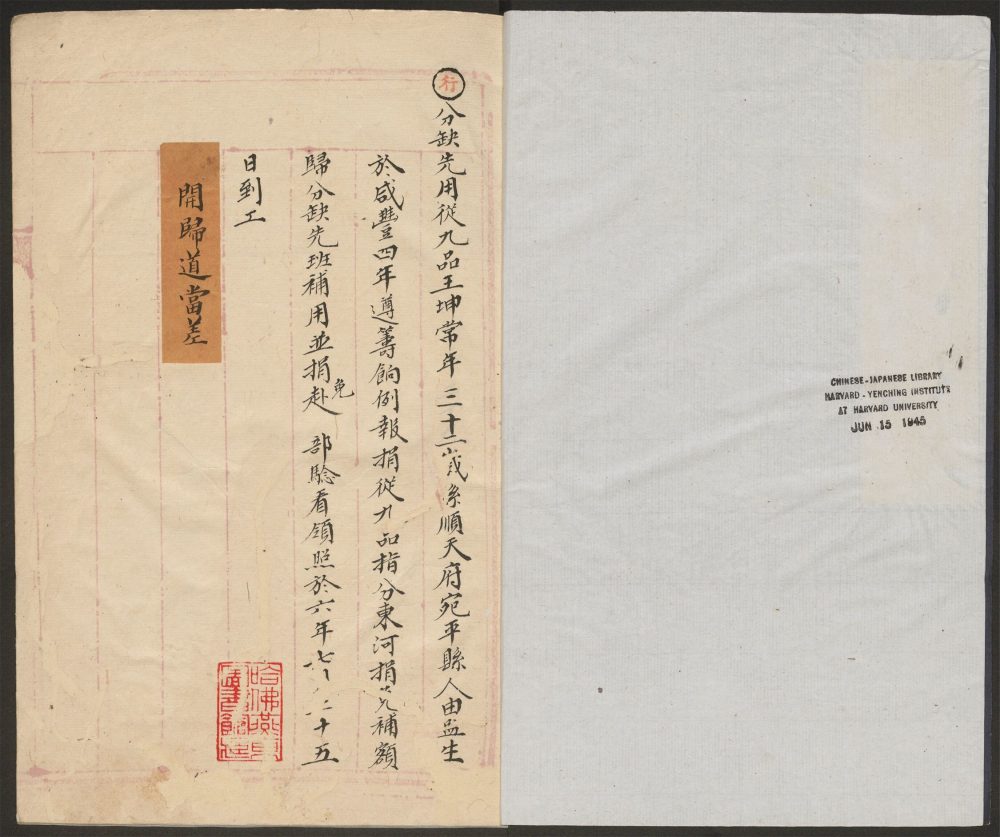 CHINESE-JAPANESE LIBRARY
HARVARD-YENCHING INSTITUTE
AT HARVARD UNIVERSITY
JUN 15 1945
行
分缺先用從九品王坤常年三十二歲係順天府宛平縣人由监生
於咸豐四年遵籌餉例報捐從九品指分東河捐免補額
歸分缺先班補用並捐免赴 部驗看領照於六年七月二十五
日到工
開歸道當差
哈佛燕京
圖書館